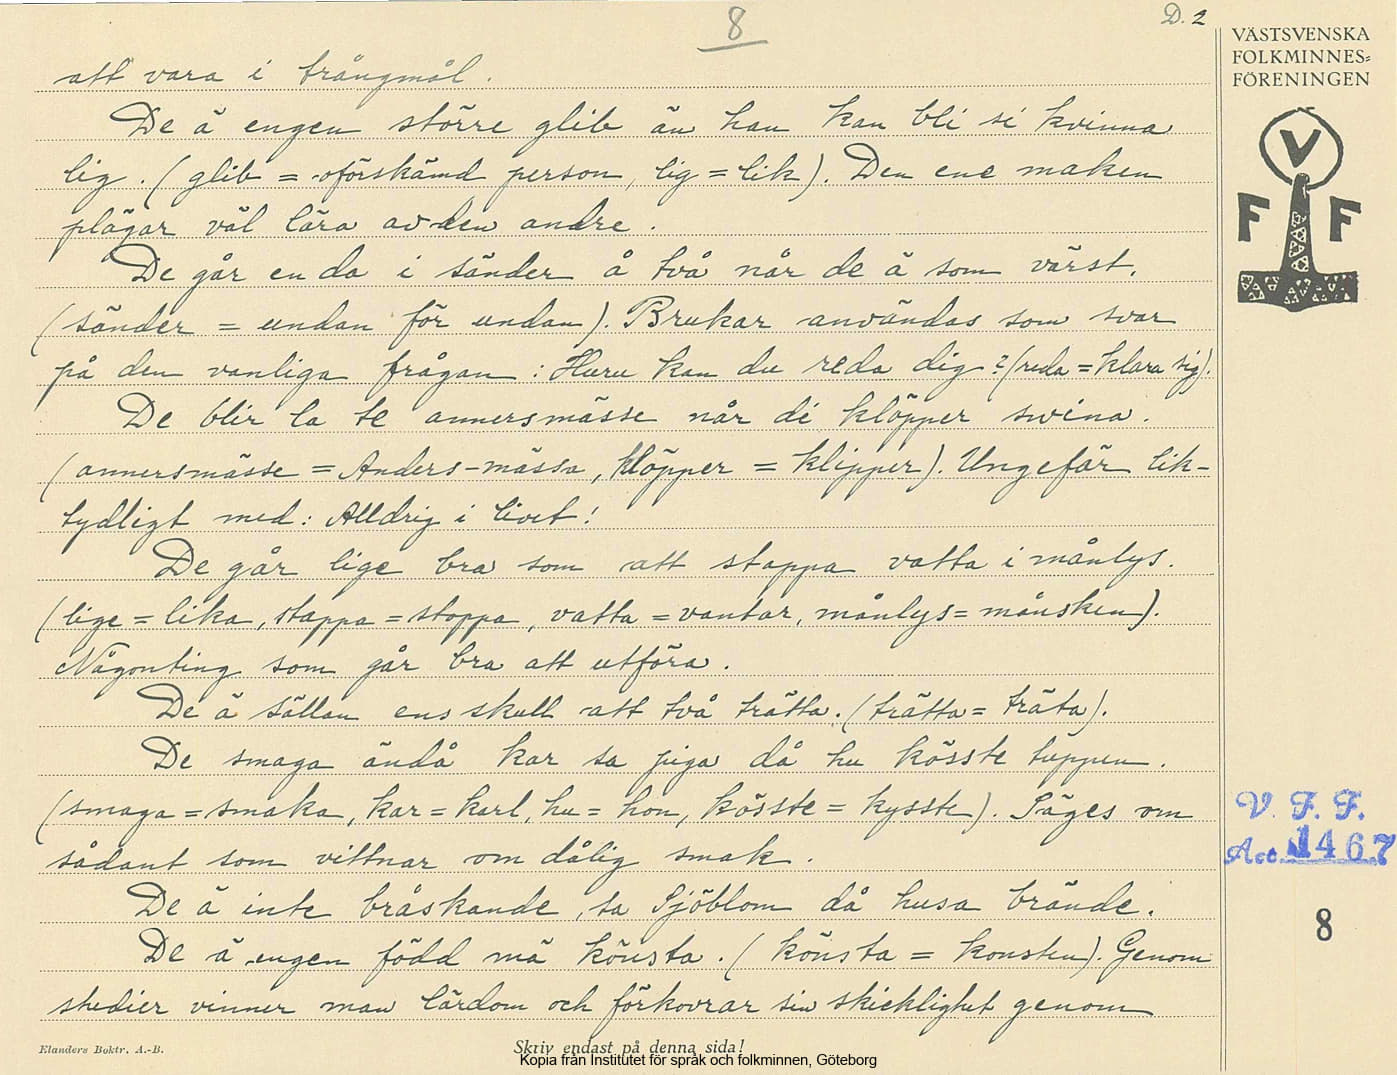 8
D. 2
att vara i trångmål.
De ä engen större glib än han kan bli si kvinna
lig. (glib = oförskämd person, lig = lik). Den ene maken
plägar väl lära av den andre.
De går en da i sänder å två når de ä som värst.
(sänder = undan för undan). Brukar användas som svar
på den vanliga frågan: Huru kan du reda dig? (reda = klara sig).
De blir la te annersmässe når di klöpper swina.
(annersmässe = Anders-mässa, klöpper = klipper). Ungefär lik-
tydligt med: Alldrig i livet!
De går lige bra som att stappa vatta i månlys.
(lige = lika, stappa = stoppa, vatta = vantar, månlys = månsken).
Någonting som går bra att utföra.
De ä sällan ens skull att två trätta. (trätta = träta).
De smaga ändå kar sa piga då hu kösste tuppen.
(smaga = smaka, kar = karl, hu = hon, kösste = kysste). Säges om
sådant som vittnar om dålig smak.
De ä inte bråskande, sa Sjöblom då husa brände.
De ä engen född mä könsta. (könsta = konsten). Genom
studier vinner man lärdom och förkovrar sin skicklighet genom
VÄSTSVENSKA
FOLKMINNES=
FÖRENINGEN
V
F F
V. F. F.
Acc. N 1467
8
Elanders Boktr. A.-B.
Skriv endast på denna sida!
Kopia från Institutet för språk och folkminnen, Göteborg